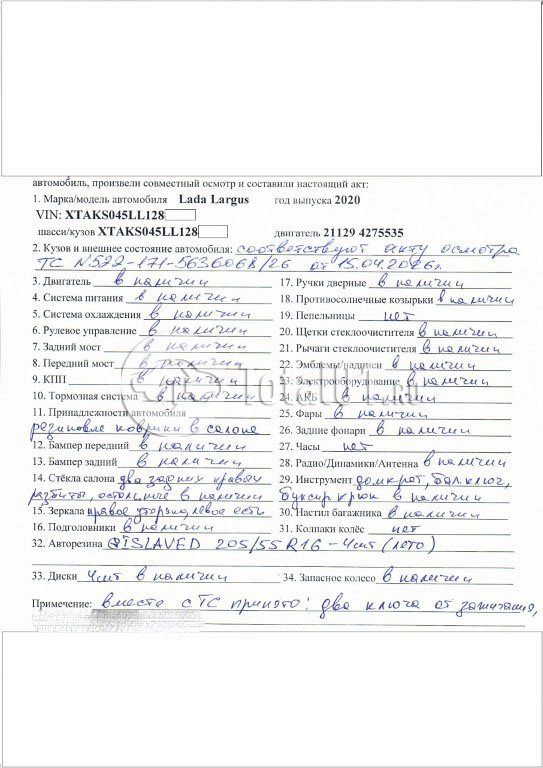 автомобиль, произвели совместный осмотр и составили настоящий акт:
1. Марка/модель автомобиля Lada Largus год выпуска 2020
VIN: XTAKS045LL128
шасси/кузов XTAKS045LL128 двигатель 21129 4275535
2. Кузов и внешнее состояние автомобиля: соответствуют акту осмотра
ТС N522-171-5636068/26 от 15.04.2026г.
3. Двигатель в наличии
4. Система питания в наличии
5. Система охлаждения в наличии
6. Рулевое управление в наличии
7. Задний мост в наличии
8. Передний мост в наличии
9. КПП в наличии
10. Тормозная система в наличии
11. Принадлежности автомобиля
резиновые коврики в салоне
12. Бампер передний в наличии
13. Бампер задний в наличии
14. Стёкла салона два задних правых
разбиты, остальные в наличии
15. Зеркала правое уторцалевое есть
16. Подголовники в наличии
17. Ручки дверные в наличии
18. Противосолнечные козырьки в наличии
19. Пепельницы нет
20. Щетки стеклоочистителя в наличии
21. Рычаги стеклоочистителя в наличии
22. Эмблемы/надписи в наличии
23. Электрооборудование в наличии
24. АКБ в наличии
25. Фары в наличии
26. Задние фонари в наличии
27. Часы нет
28. Радио/Динамики/Антенна в наличии
29. Инструмент домкрат, бал.ключ,
буксир крюк в наличии
30. Настил багажника в наличии
31. Колпаки колёс нет
32. Авторезина GISLAVED 205/55 R16 - 4шт (лето)
33. Диски 4шт в наличии
34. Запасное колесо в наличии
Примечание: Вместе с ТС принято: два ключа от зажигания,
Total01.ru